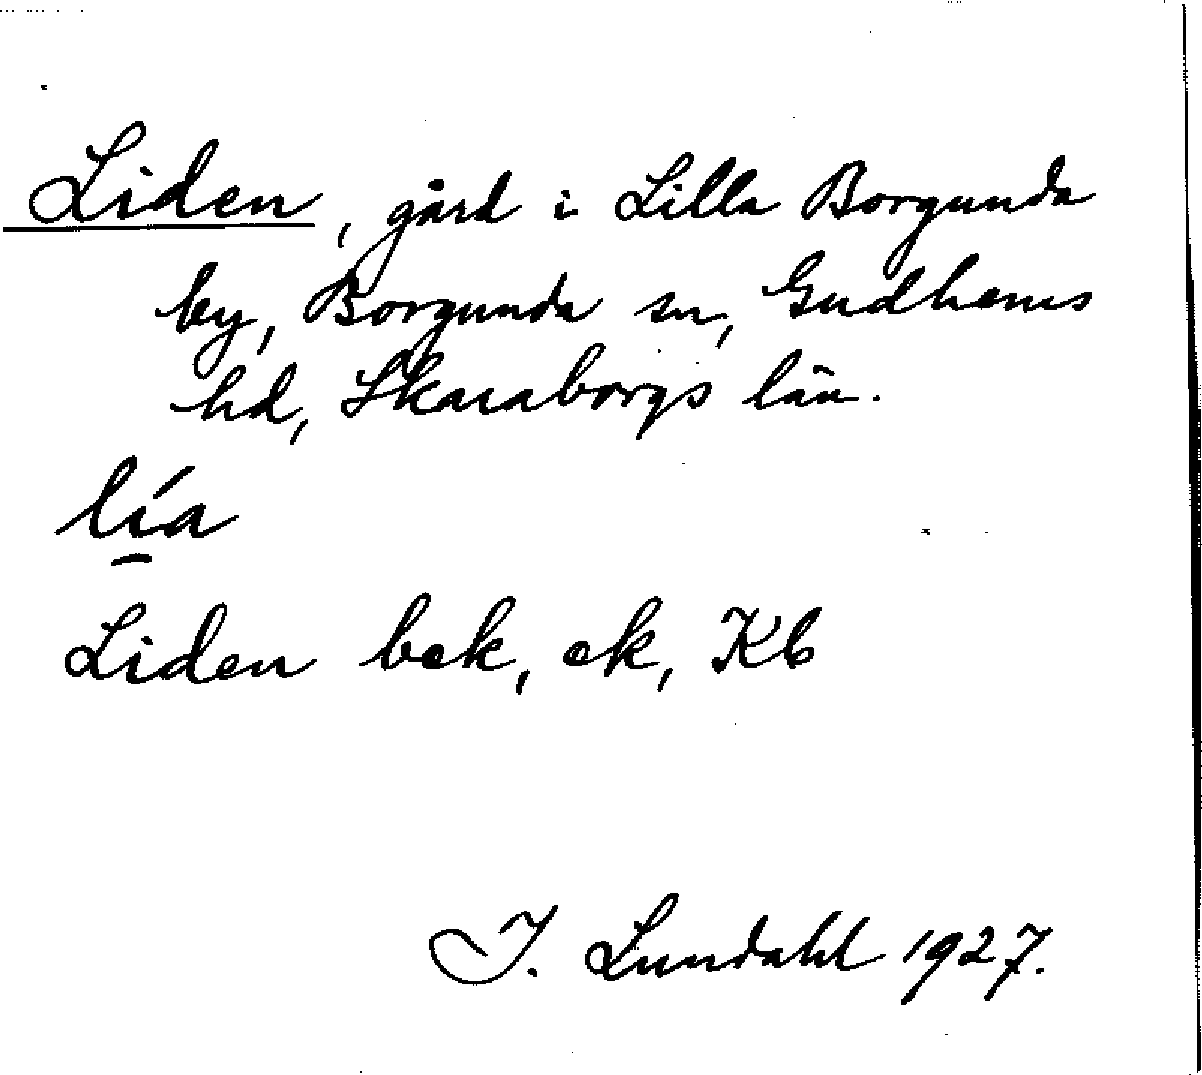 Liden, gård i Lilla Borgunda
by, Borgunda sn, Gudhems
hd, Skaraborgs län.
lí̱a
Liden bek, ek, Kb
I. Lundahl 1927.